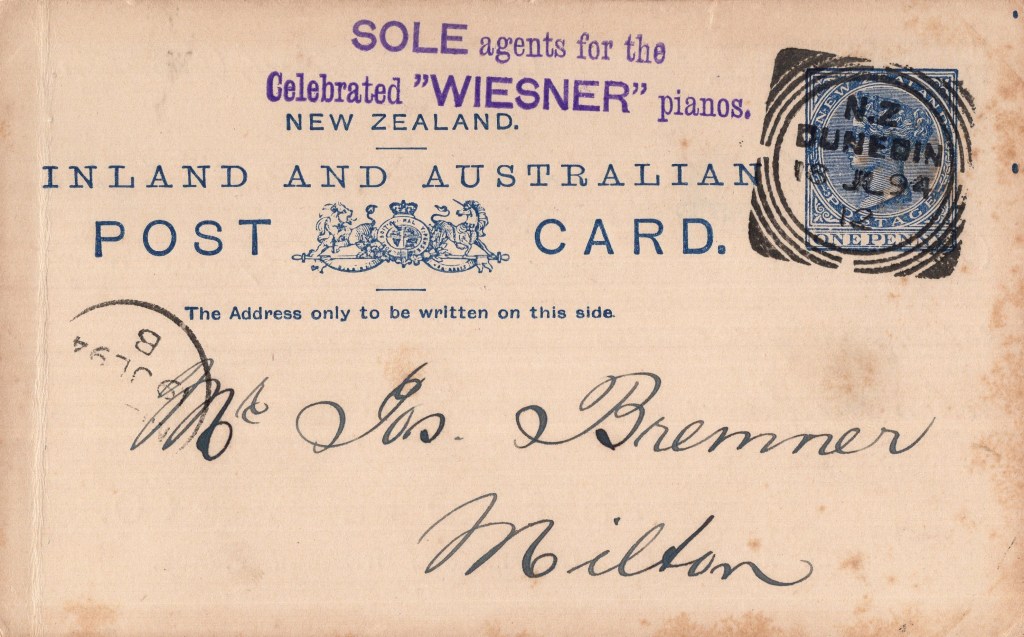 SOLE agents for the
Celebrated "WIESNER" pianos.
NEW ZEALAND.
INLAND AND AUSTRALIAN
POST CARD.
The Address only to be written on this side.
N.Z
DUNEDIN
18 JL 94
12
ONE PENNY
JL 94
B
Mr Jos. Bremner
Milton